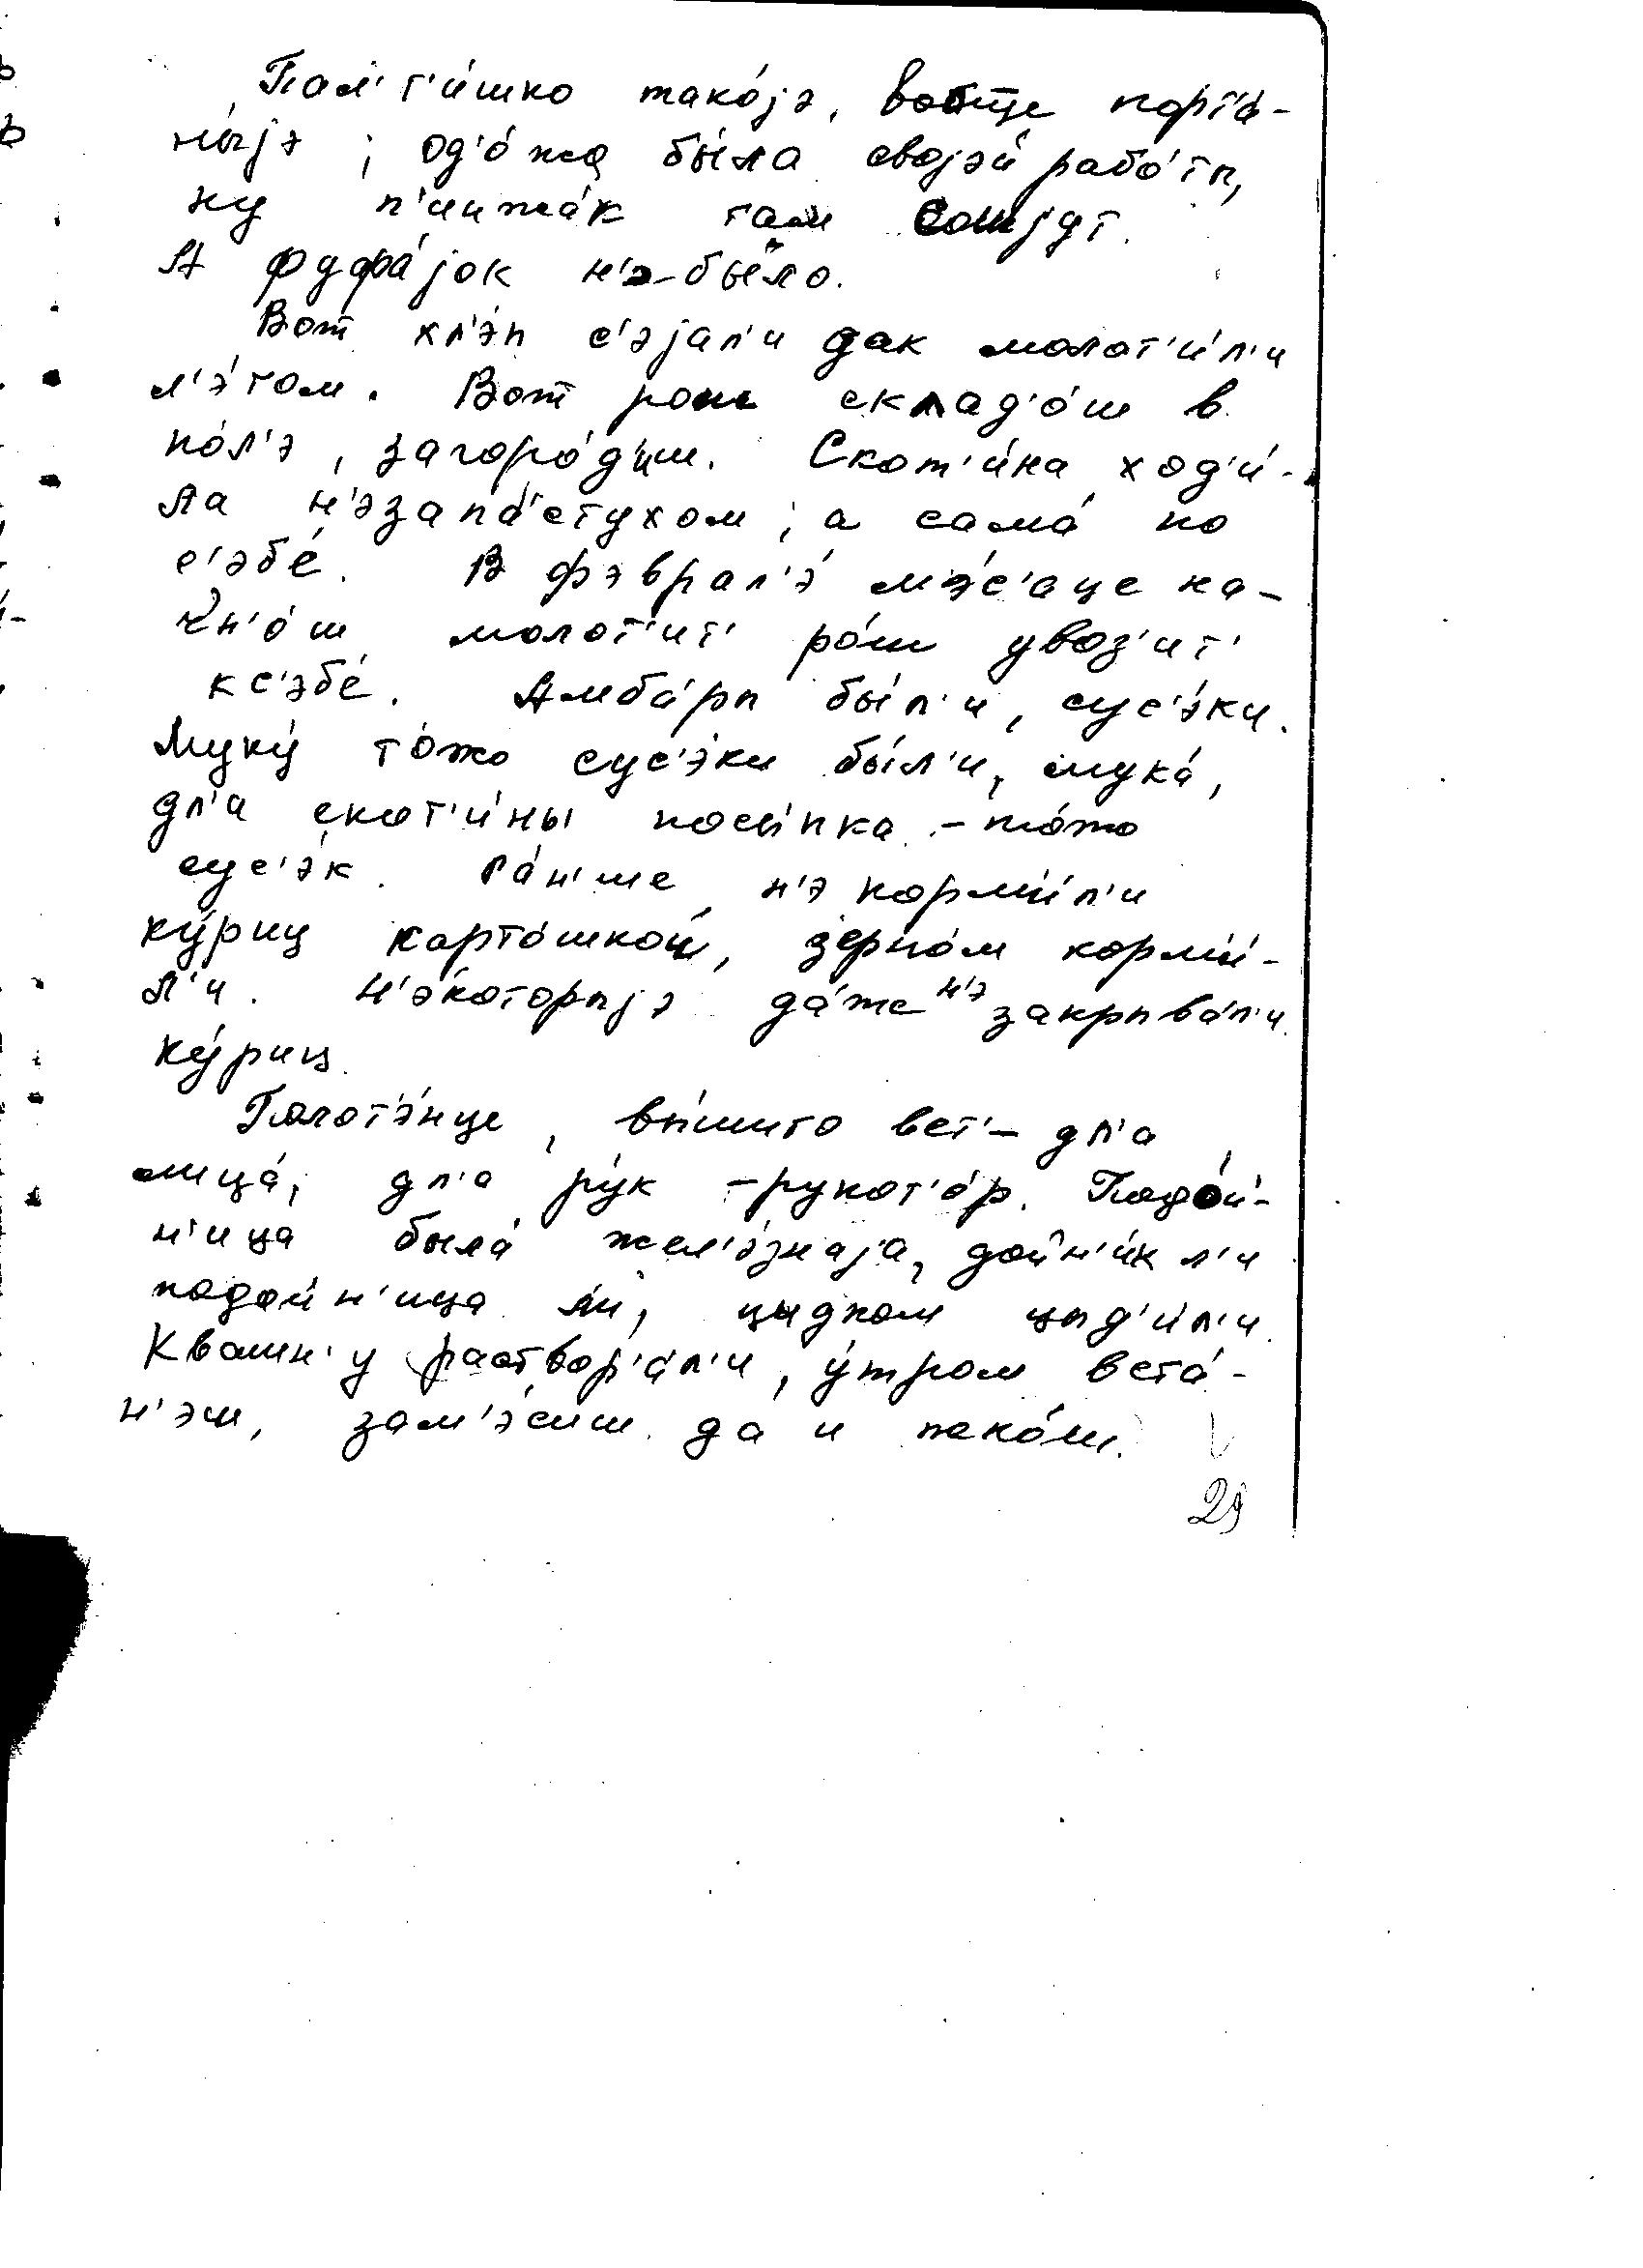 Пал'т'и́шко тако́jэ, вобще порт'а́-
ны́jэ ; од'о́жа бы́ла своjэй рабо́тп,
ну п'инжа́к там сошjут.
А фуфа́jок н'э-бы́ло.
Вот хл'э́п с'э́jал'и дак молот'и́л'и
л'э́том. Вот рош склад'о́ш в
по́л'э, загоро́д'иш. Скот'и́на ход'и́-
ла н'эзапа́стухом, а сама́ по
с'эбе́. В фэврал'э́ м'э́с'аце на-
чн'о́ш молот'ит' ро́ш увоз'ит'
кс'эбе́. Амба́рп бы́л'и, сус'э́ки.
Муку́ то́жо сус'э́ки бы́л'и, мука́,
дл'а скот'и́ны посы́пка - то́жо
сус'э́к. Ра́н'ше н'э корми́л'и
ку́риц карто́шкой, зерно́м корми́-
л'и. Н'э́которпjэ да́же н'э закрпва́л'и
ку́риц.
Полот'э́нце, вы́шито вет'- дл'а
лица́, дл'а ру́к - рукот'о́р. Подо́й-
н'ица была́ жел'э́знаjа, дойн'и́к л'и
подойн'ица ли, цыдком цпд'и́л'и.
Квашн'у раствор'а́л'и, у́тром вста́-
н'эш, зам'э́сиш да и пеко́ш.
29